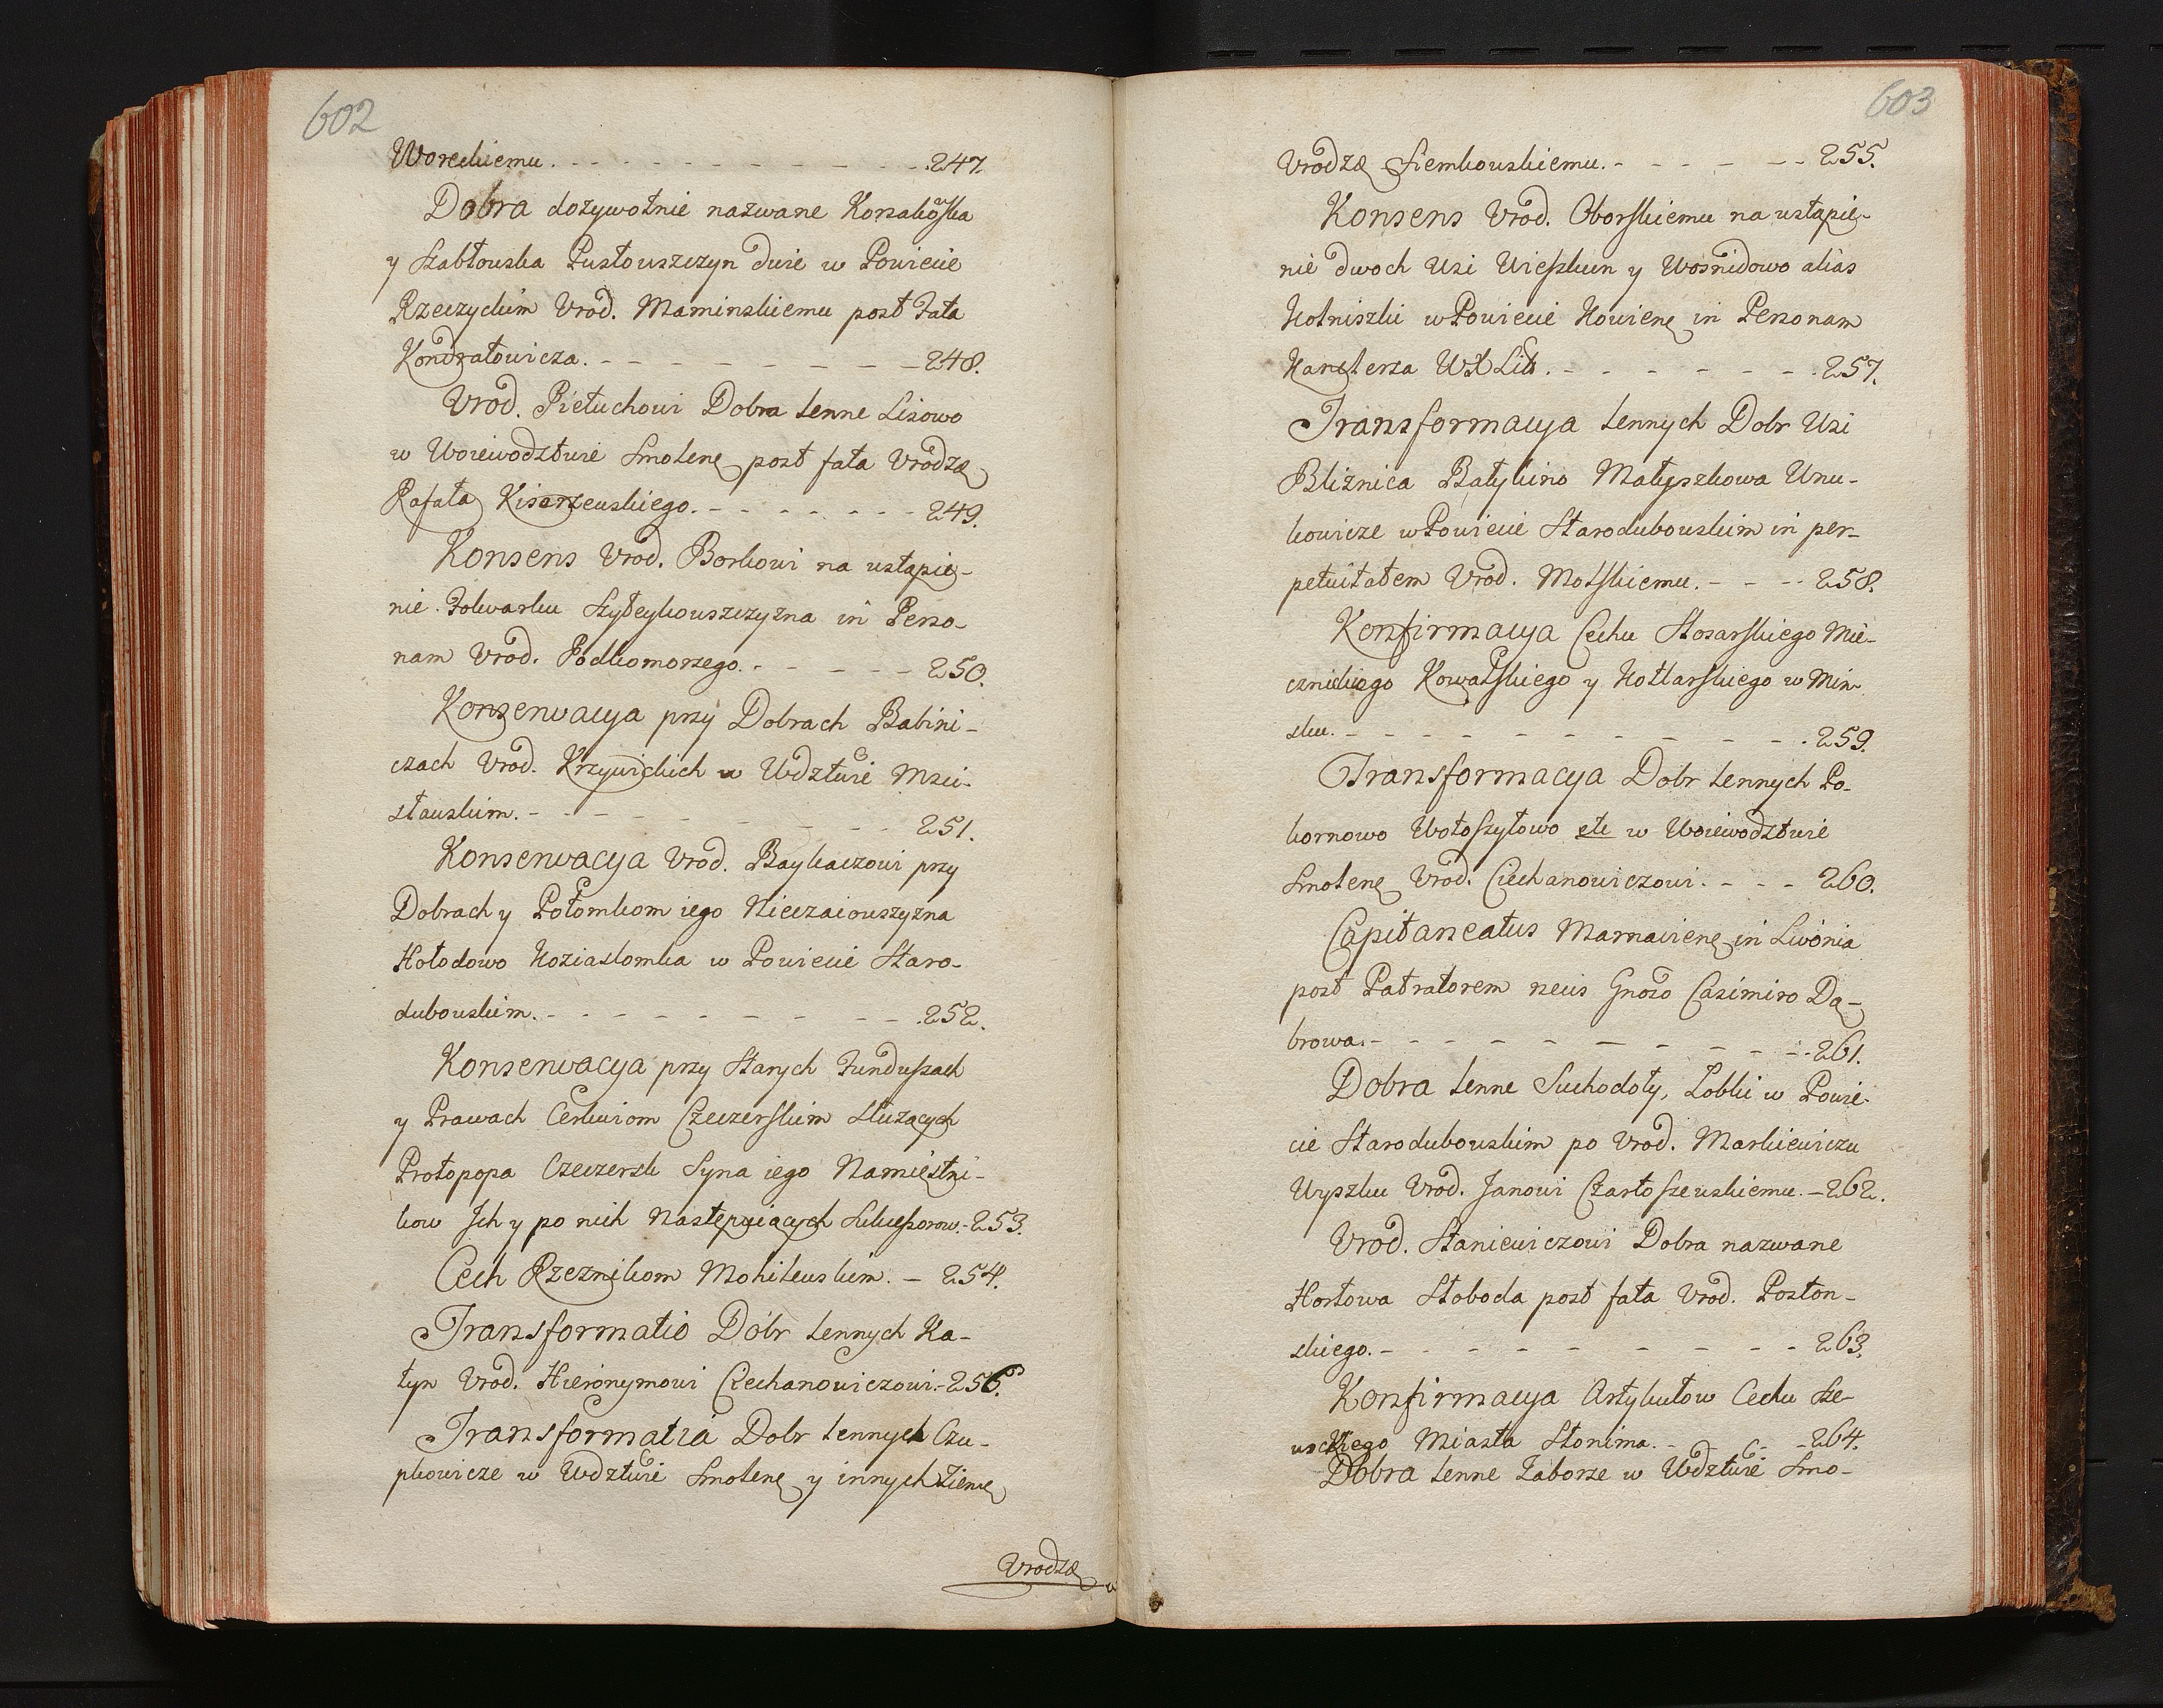 602
Woreckiemu. - - - - - - - - - - - 247.
Dobra dożywotnie nazwane Korsakowska
y Szabłowska Pustowszczyn dwie w Powiecie
Rzeczyckim Vrod. Maminskiemu post Fata
Kondratowicza. - - - - - - - - 248.
Vrod. Pietuchowi Dobra lenne Lisowo
w Woiewodztwie Smolenę post fata Vrodzę
Rafała Kisarzewskiego. - - - - - - - 249.
Konsens Vrod. Borkowi na ustąpie-
nie Folwarku Szyteykowszczyzna in Perso-
nam Vrod. Podkomorzego. - - - - - - 250.
Konserwacya przy Dobrach Babini-
czach Vrod. Krzywickich w Wdztwie Msci-
sławskim. - - - - - - - - - - 251.
Konserwacya Vrod. Baykaczowi przy
Dobrach y Potomkom iego Nieczaiowszyzna
Hołodowo Koziastomka w Powiecie Staro-
dubowskim. - - - - - - - - - - 252.
Konserwacya przy Starych Funduszach
y Prawach Cerkwiom Czeczerskim służących
Protopopa Czeczersk Syna iego Namiestni-
kow Ich y po nich Następuiących Sukcessorow.-253.
Cech Rzeznikom Mohilewskim. - 254.
Transformatio Dobr lennych Ka-
tyn Vrod. Hieronymowi Ciechanowiczowi.-256.
Transformatia Dobr lennych Czu-
pkowicze w Wdztwie Smolenę y innych Ziemę
Vrodzę
603
Vrodzę Siemkowskiemu. - - - - - - 255.
Konsens Vrod. Oborskiemu na ustąpie-
nie dwoch Wsi Wieszkun y Wośnidowo alias
Kolniszki w Powiecie Kowienę in Personam
Kanclerza WXLitt. - - - - - - - 257.
Transformacya lennych Dobr Wsi
Bliznica Batykino Matyszkowa Unu-
kowicze w Powiecie Starodubowskim in per-
petuitatem Vrod. Motskiemu. - - - - 258.
Konfirmacya Cechu Slosarskiego Mie-
cznickiego Kowalskiego y Kotlarskiego w Min-
sku. - - - - - - - - - - 259.
Transformacya Dobr lennych Po-
kornowo Wołoszytowo etc w Woiewodztwie
Smolenę Vrod. Ciechanowiczowi. - - - 260.
Capitaneatus Marnavienę in Livonia
post Patratorem necis Gnoso Casimiro Dą-
browa. - - - - - - - - - - 261.
Dobra lenne Suchodoły, Łobki w Powie-
cie Starodubowskim po Vrod. Markiewiczu
Wyszku Vrod. Janowi Czartoszewskiemu. - 262.
Vrod. Staniewiczowi Dobra nazwane
Hostowa Słoboda post fata Vrod. Poston-
skiego. - - - - - - - - - - 263.
Konfirmacya Artykułow Cechu Sze-
wckiego Miasta Słonima. - - - - 264.
Dobra lenne Zaborze w Wdztwie Smo-